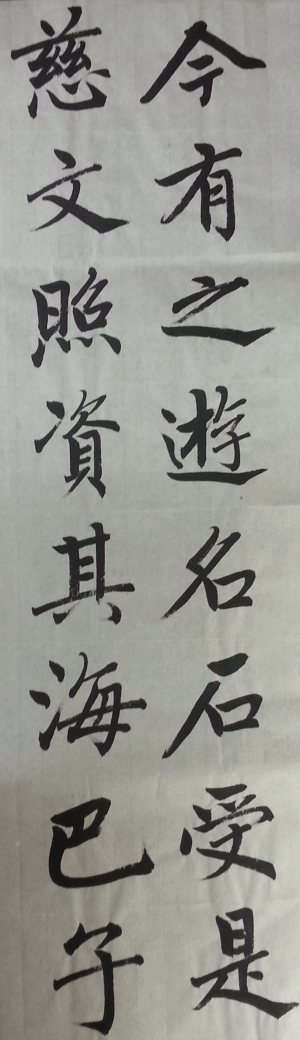 今有之遊名石受是
慈文照資其海巴子